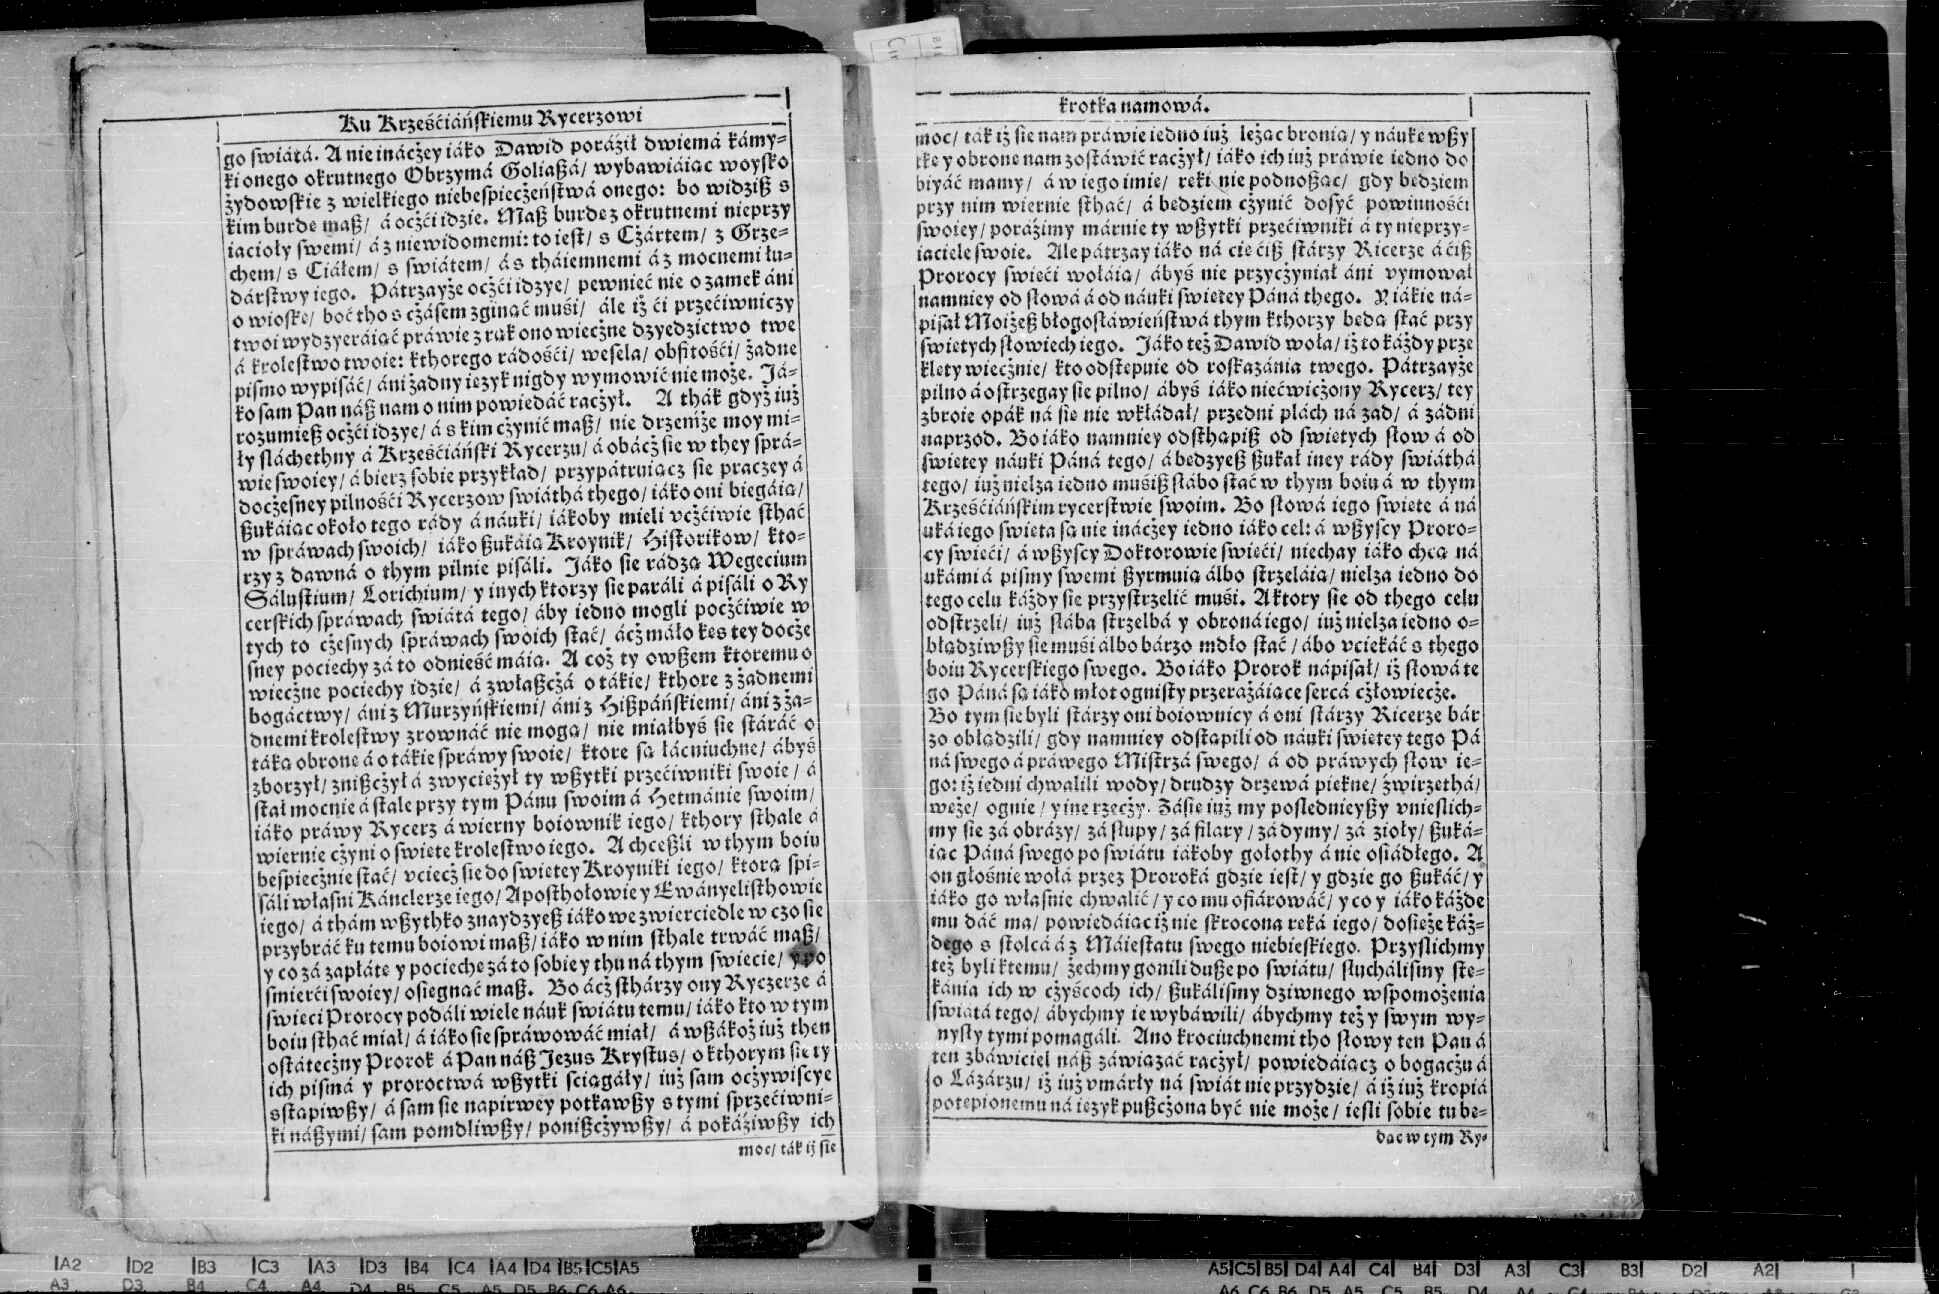 Ku Krześćiáńſkiemu Rycerzowi
go świátá. A nie inácżey iáko Dawid poráźił dwiemá kámy-
ki onego okrutnego Obrzymá Goliaßá/ wybawiáiac woyſko
żydowſkie z wielkiego niebeſpiecżeńſtwá onego: bo widziß s
kim burde maß/ á ocżći idzie. Maß burde z okrutnemi nieprzy
iacioły ſwemi/ á z niewidomemi: to ieſt/ s Cżártem/ z Grze-
chem/ s Ciáłem/ s świátem/ á s tháiemnemi á z mocnemi łu-
dárſtwy iego. Pátrzayże ocżći idzye/ pewnieć nie o zamek áni
o wioſke/ boć tho s cżáſem zginąć muśi/ ále iż ći przećiwniczy
twoi wydzyeráiąć práwie z rąk ono wiecżne dzyedzictwo twe
á kroleſtwo twoie: kthorego rádośći/ weſela/ obfitośći/ żadne
piſmo wypiſáć/ áni żadny ięzyk nigdy wymowić nie może. Já-
ko ſam Pan náß nam o nim powiedáć racżył. A thák gdyż iuż
rozumieß ocżći idzye/ á s kim cżynić maß/ nie drzemiże moy mi-
ły ſláchethny á Krześćiáńſki Rycerzu/ á obácż ſie w they ſprá-
wie ſwoiey/ á bierz ſobie przykład/ przypátruiącz ſie praczey á
docżeſney pilnośći Rycerzow świáthá thego/ iáko oni biegáią/
ßukáiąc około tego rády á náuki/ iákoby mieli vcżćiwie ſtháć
w ſpráwach ſwoich/ iáko ßukáią Kroynik/ Hiſtorikow/ kto-
rzy z dawná o thym pilnie piſáli. Jáko ſie rádzą Wegecium
Sáluſtium/ Lorichium/ y inych ktorzy ſie paráli á piſáli o Ry
cerſkich ſpráwach świátá tego/ áby iedno mogli pocżćiwie w
tych to cżeſnych ſpráwach ſwoich ſtać/ ácż máło kęs tey docże
ſney pociechy zá to odnieść máią. A coż ty owßem ktoremu o
wiecżne pociechy idzie/ á zwłaßcżá o tákie/ kthore z żadnemi
bogáctwy/ áni z Murzyńſkiemi/ áni z Hißpáńſkiemi/ áni z ża-
dnemi kroleſtwy zrownáć nie mogą/ nie miałbyś ſie ſtáráć o
táką obronę á o tákie ſpráwy ſwoie/ ktore ſą łácniuchne/ ábyś
zborzył/ znißcżył á zwyciężył ty wßytki przećiwniki ſwoie/ á
ſtał mocnie á ſtale przy tym Pánu ſwoim á Hetmánie ſwoim/
iáko práwy Rycerz á wierny boiownik iego/ kthory ſthale á
wiernie cżyni o święte kroleſtwo iego. A chceßli w thym boiu
beſpiecżnie ſtać/ vciecż ſie do świętey Kroyniki iego/ ktorą ſpi-
ſáli właſni Kánclerze iego/ Apoſthołowie y Ewányeliſthowie
iego/ á thám wßythko znaydzyeß iáko we zwierciedle w czo ſie
przybráć ku temu boiowi maß/ iáko w nim ſthale trwáć maß/
y co zá zapłáte y pociechę zá to ſobie y thu ná thym świecie/ y po
śmierći ſwoiey/ ośięgnąć maß. Bo ácż ſthárzy ony Ryczerze á
święci Prorocy podáli wiele náuk świátu temu/ iáko kto w tym
boiu ſtháć miał/ á iáko ſie ſpráwowáć miał/ á wßákoż iuż then
oſtátecżny Prorok á Pan náß Jezus Kryſtus/ o kthorym ſie ty
ich piſmá y proroctwá wßytki ściągáły/ iuż ſam ocżywiſcye
sſtąpiwßy/ á ſam ſie napirwey potkawßy s tymi ſprzećiwni-
ki náßymi/ ſam pomdliwßy/ ponißcżywßy/ á pokáźiwßy ich
moc/ ták iż ſie
krotka namowá.
moc/ ták iż ſie nam práwie iedno iuż leżąc bronią/ y náukę wßy
tkę y obronę nam zoſtáwić racżył/ iáko ich iuż práwie iedno do
biyáć mamy/ á w iego imię/ ręki nie podnoßąc/ gdy będziem
przy nim wiernie ſtháć/ á będziem cżynić doſyć powinnośći
ſwoiey/ poráźimy márnie ty wßytki przećiwniki á ty nieprzy-
iaciele ſwoie. Ale pátrzay iáko ná cię ćiß ſtárzy Ricerze á ćiß
Prorocy święći wołáią/ ábyś nie przycżyniał áni vymował
namniey od ſłowá á od náuki świętey Páná thego. Y iákie ná-
piſał Moiżeß błogoſłáwieńſtwá thym kthorzy będą ſtać przy
świętych ſłowiech iego. Jáko też Dawid woła/ iż to káżdy prze
klęty wiecżnie/ kto odſtępuie od roſkazánia twego. Pátrzayże
pilno á oſtrzegay ſie pilno/ ábyś iáko niećwicżony Rycerz/ tey
zbroie opák ná ſie nie wkłádał/ przedni plách ná zad/ á zádni
naprzod. Bo iáko namniey odſthąpiß od świętych ſłow á od
świętey náuki Páná tego/ á będzyeß ßukał iney rády świáthá
tego/ iuż nielza iedno muśiß ſłábo ſtać w thym boiu á w thym
Krześćiáńſkim rycerſtwie ſwoim. Bo ſłowá iego święte á ná
uká iego święta ſą nie inácżey iedno iáko cel: á wßyſcy Proro-
cy święći/ á wßyſcy Doktorowie święći/ niechay iáko chcą ná
ukámi á piſmy ſwemi ßyrmuią álbo ſtrzeláią/ nielza iedno do
tego celu káżdy ſie przyſtrzelić muśi. A ktory ſie od thego celu
odſtrzeli/ iuż ſłába ſtrzelbá y obroná iego/ iuż nielza iedno o-
błądziwßy ſie muśi álbo bárzo mdło ſtać/ ábo vciekáć s thego
boiu Rycerſkiego ſwego. Bo iáko Prorok nápiſał/ iż ſłowá te
go Páná ſą iáko młot ogniſty przerażáiące ſercá cżłowiecże.
Bo tym ſie byli ſtárzy oni boiownicy á oni ſtárzy Ricerze bár
zo obłądzili/ gdy namniey odſtąpili od náuki świętey tego Pá
ná ſwego á práwego Miſtrzá ſwego/ á od práwych ſłow ie-
go: iż iedni chwalili wody/ drudzy drzewá piękne/ źwirzęthá/
węże/ ognie/ y ine rzecży. Záſię iuż my poſlednieyßy vnieſlich-
my ſie zá obrázy/ zá ſłupy/ zá filary/ zá dymy/ zá zioły/ ßuká-
iąc Páná ſwego po świátu iákoby gołothy á nie oſiádłego. A
on głośnie woła przez Proroká gdzie ieſt/ y gdzie go ßukáć/ y
iáko go właſnie chwalić/ y co mu ofiárowáć/ y co y iáko káżde
mu dáć ma/ powiedáiąc iż nie ſkrocona ręká iego/ doſięże káż-
dego s ſtolcá á z Máieſtatu ſwego niebieſkiego. Przyſlichmy
też byli k temu/ żechmy gonili duße po świátu/ ſłuchálismy ſtę-
kánia ich w cżyścoch ich/ ßukálismy dziwnego wſpomożenia
świátá tego/ ábychmy ie wybáwili/ ábychmy też y ſwym wy-
nysły tymi pomagáli. Ano krociuchnemi tho ſłowy ten Pan á
ten zbáwiciel náß záwiązáć racżył/ powiedáiącz o bogaczu á
o Łázárzu/ iż iuż vmárły ná świát nie przydzie/ á iż iuż kropiá
potępionemu ná ięzyk pußcżoną być nie może/ ieſli ſobie tu bę-
dąc w tym Ry-
A2 D2 B3 C3 A3 D3 B4 C4 A4 D4 B5 C5 A5
A3 D3 B4 C4 A4 D4 B5 C5 A5 D5 B6 C6 A6
A5 C5 B5 D4 A4 C4 B4 D3 A3 C3 B3 D2 A2
A6 C6 B6 D5 A5 C5 B5 D4 A4 C4